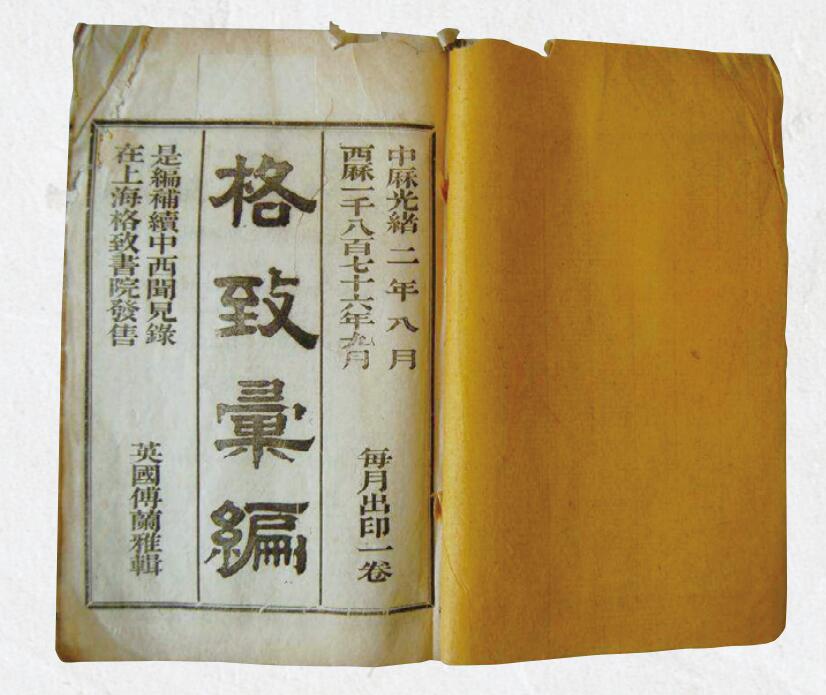 中厤光緒二年八月
西厤一千八百七十六年九月
每月出印一卷
格致彚編
是編補續中西聞見錄
在上海格致書院發售
英國傅蘭雅輯